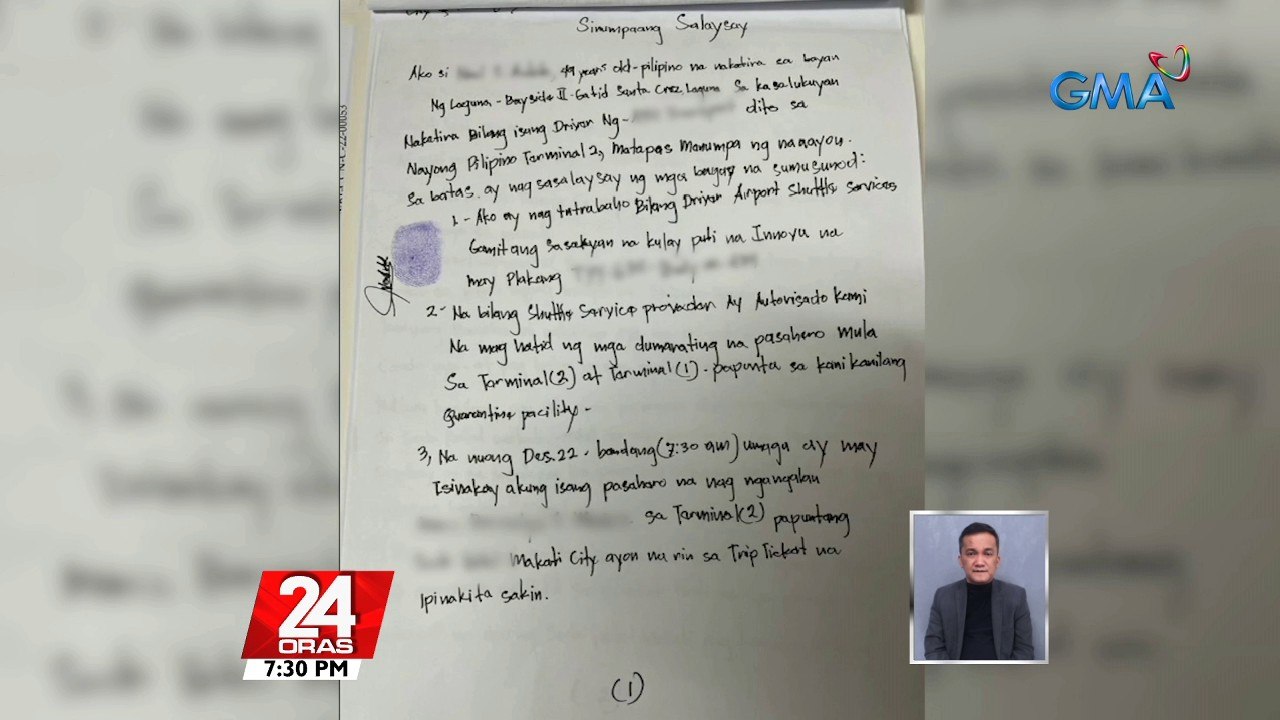 Sinumpaang Salaysay
Ako si 49 years old-pilipino na nakatira sa bayan
Ng Laguna - Bayside II-Gatid Santa Cruz, Laguna Sa kasalukuyan
Nakatira Bilang isang Driver Ng- dito sa
Nayong Pilipino Tarminal 2, Matapos Manumpa ng naaayou.
Sa batas. ay nagsasalaysay ng mga bagay na sumusunod:
1 - Ako ay nag tatrabaho Bilang Driver Airport Shuttle Services
Gamit ang sasakyan na kulay puti na Innova na
may Plakang
2- Na bilang Shuttle Service provader Ay Autorisado kami
Na mag hatid ng mga dumarating na pasahero mula
Sa Tarminal(2) at Tarminal(1) - papunta sa kani kanilang
Quarantine pacility -
3, Na nuong Des. 22 - bandang (7:30 am) umaga ay may
Isinakay akung isang pasahero na nag ngangalan
sa Tarminal(2) papuntang
Makati City ayon na rin sa Trip Ticket na
Ipinakita sakin.
(1)
GMA
24
ORAS
7:30 PM